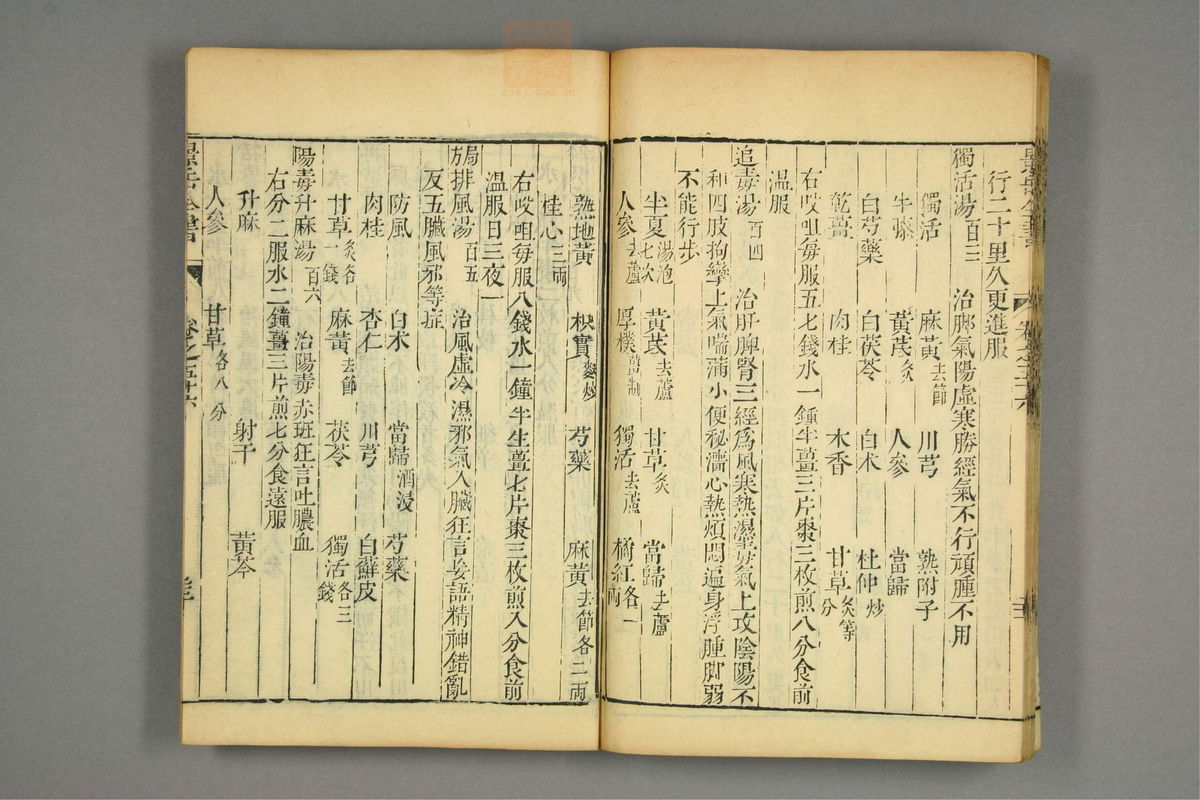 行二十里久更進服
獨活湯百三 治脚氣陽虛寒勝經氣不行頑腫不用
獨活 麻黃去節 川芎 熟附子
牛膝 黃芪炙 人參 當歸
白芍藥 白茯苓 白朮 杜仲炒
乾薑 肉桂 木香 甘草炙等分
右㕮咀每服五七錢水一鍾半薑三片棗三枚煎八分食前
溫服
追毒湯百四 治肝脾腎三經爲風寒熱濕毒氣上攻陰陽不
和四肢拘攣上氣喘滿小便秘濇心熱煩悶遍身浮腫脚弱
不能行步
半夏湯泡七次 黃芪去蘆 甘草炙 當歸去蘆
人參去蘆 厚樸薑制 獨活去蘆 橘紅各一兩
熟地黃 枳實麩炒 芍藥 麻黃去節各二兩
桂心三兩
右㕮咀每服八錢水一鐘半生薑七片棗三枚煎八分食前
溫服日三夜一
局方排風湯百五 治風虛冷濕邪氣入臟狂言妄語精神錯亂
及五臟風邪等症
防風 白朮 當歸酒浸 芍藥
肉桂 杏仁 川芎 白蘚皮
甘草炙各一錢 麻黃去節 茯苓 獨活各三錢
陽毒升麻湯百六 治陽毒赤班狂言吐膿血
右分二服水二鐘薑三片煎七分食遠服
升麻 射干 黃芩
人參 甘草各八分
景岳全書 卷之五十六